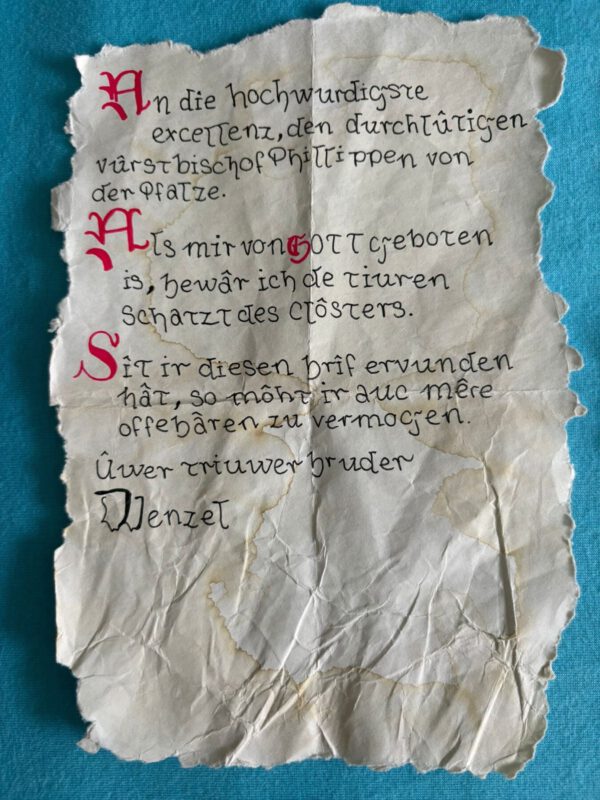 An die hochwurdigste
excellenz, den durchlûtigen
vûrstbischof Phillippen von
der Pfalze.
Als mir von GOTT geboten
is, bewâr ich de tiuren
schatzt des clôsters.
Sît ir diesen brîf ervunden
hât, so môht ir auc mêre
offebâren zu vermogen.
Ûwer triuwer bruder
Wenzel